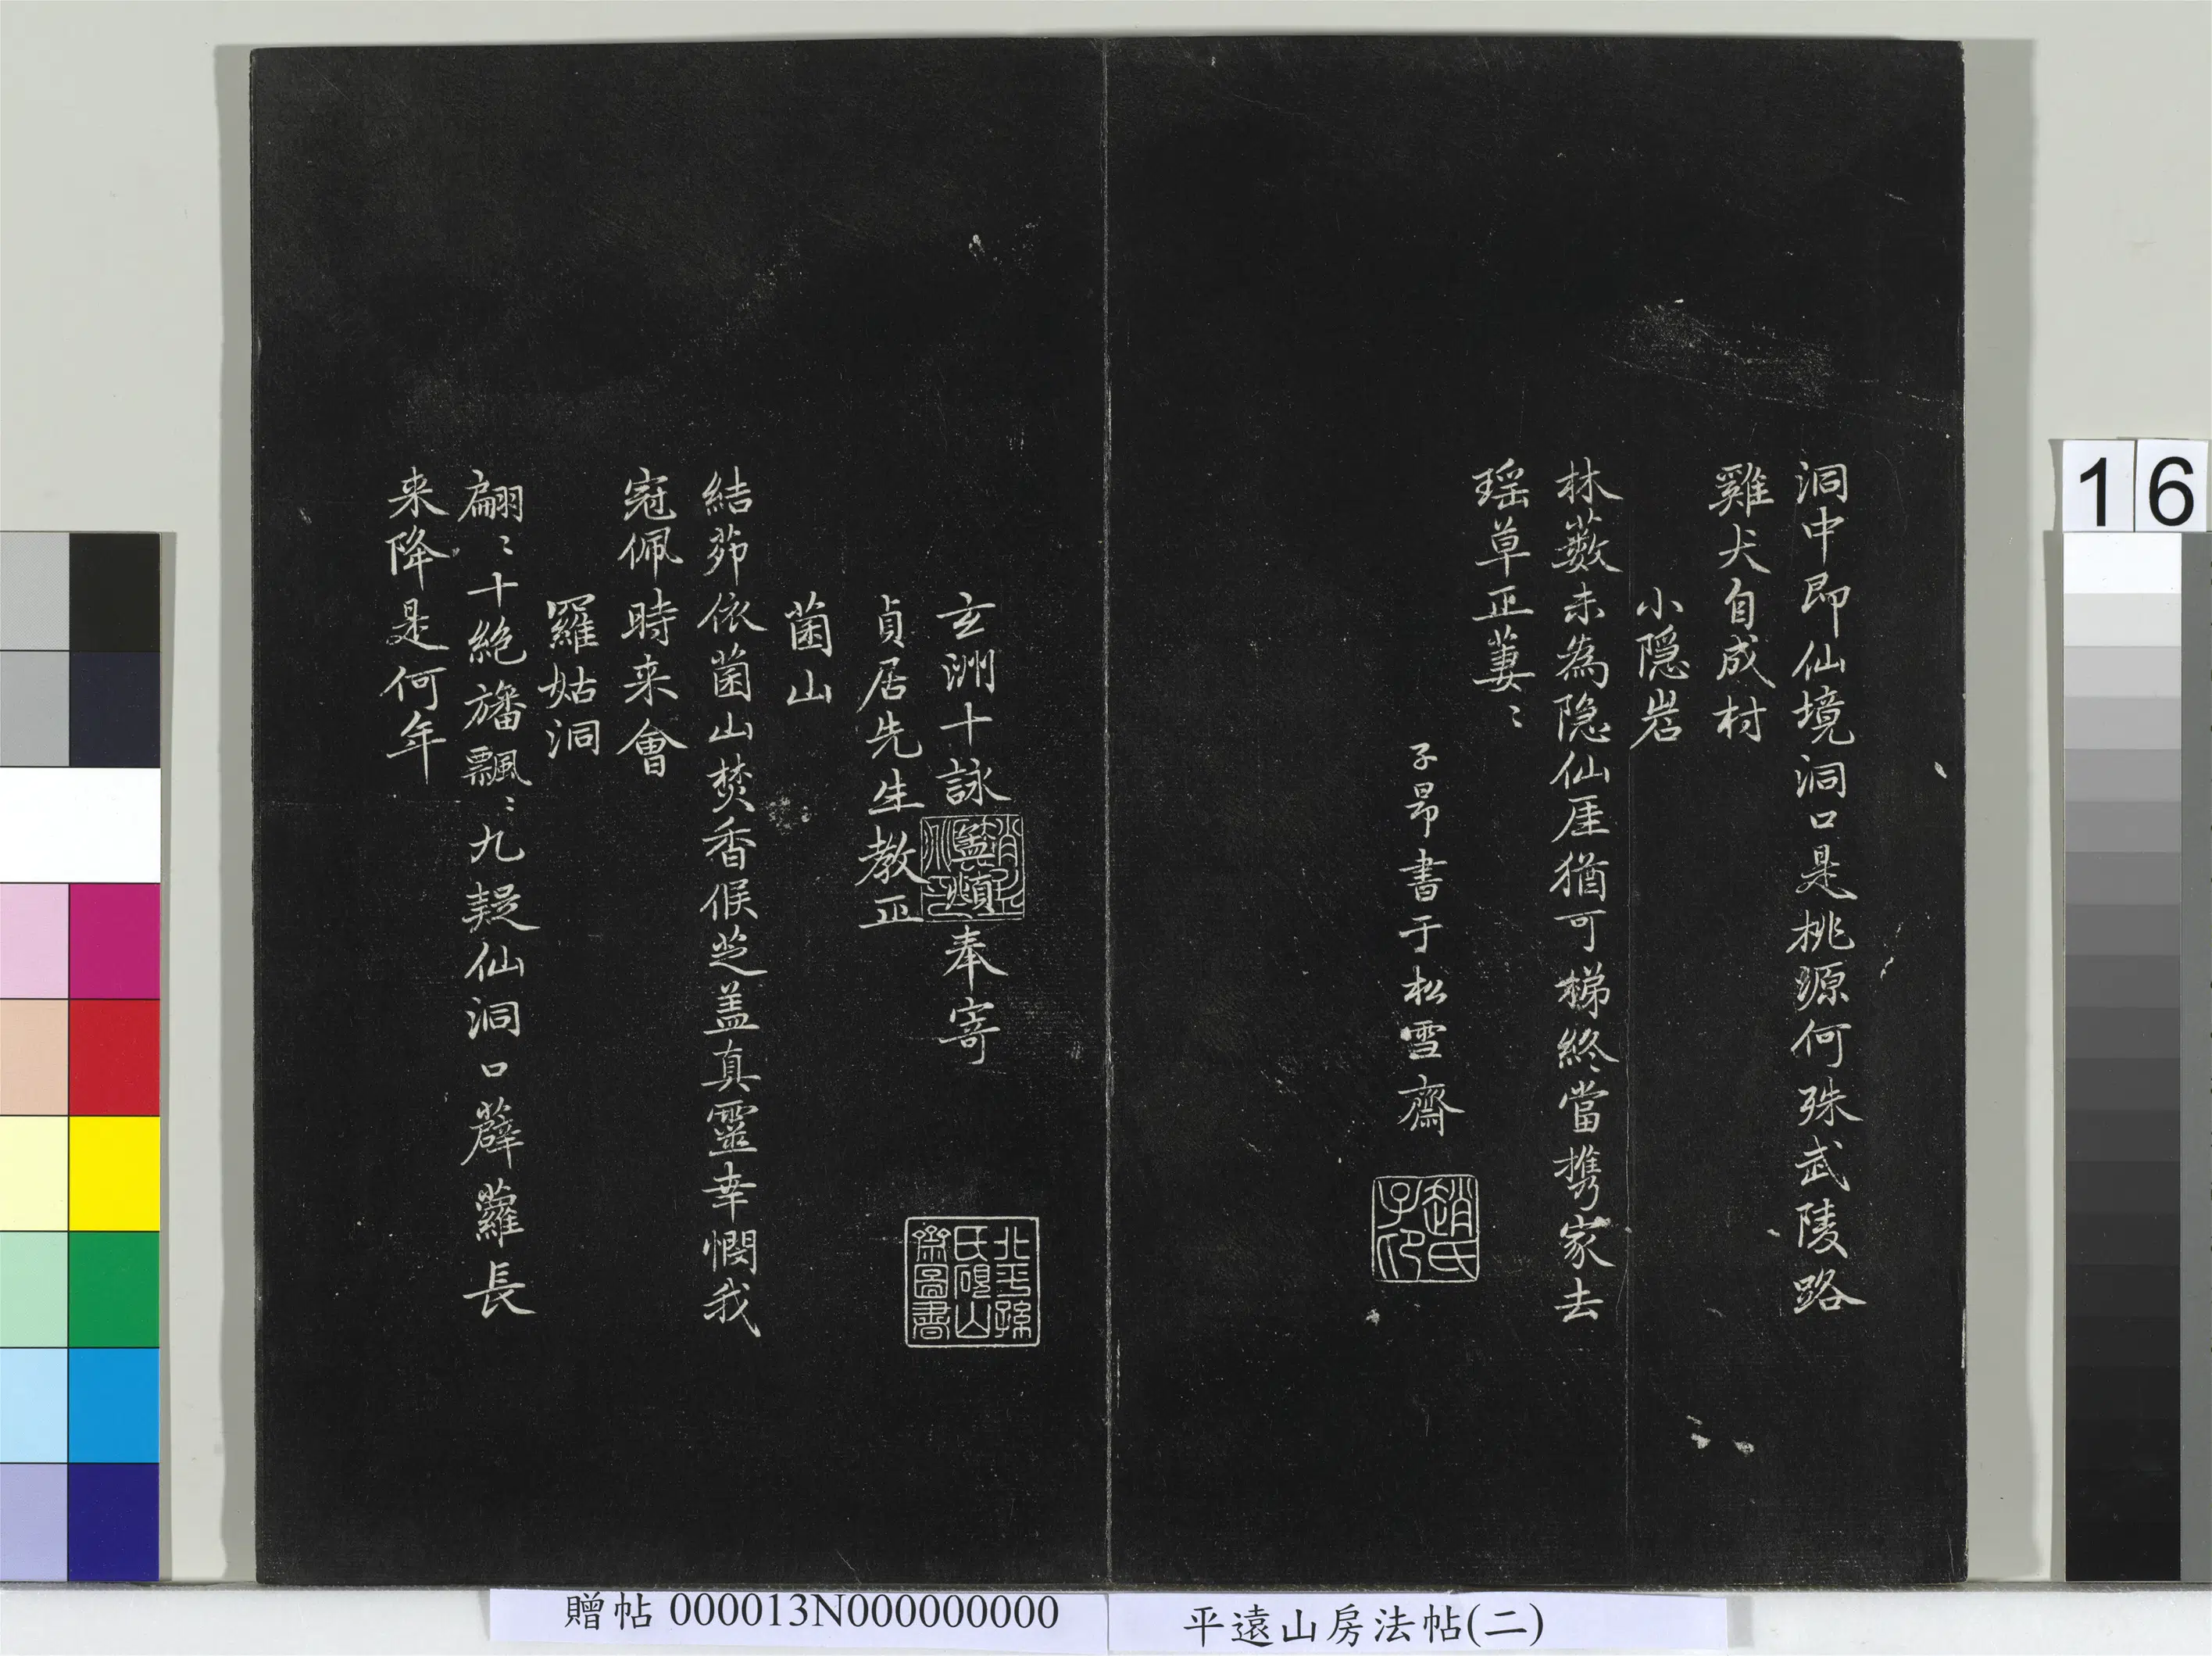 洞中即仙境洞口是桃源何殊武陵路
雞犬自成村
小隱岩
林藪未為隐仙厓猶可梯終當携家去
瑶草正萋〻
子昂書于松雪齋
趙氏子印
玄洲十詠
奉寄
北平孫氏硯山齋圖書
貞居先生教正
菌山
結茆依菌山焚香候芝盖真靈幸憫我
冠佩時来會
羅姑洞
翩〻十絶旛飄〻九疑仙洞口薜蘿長
来降是何年
16
贈帖 000013N000000000
平遠山房法帖(二)